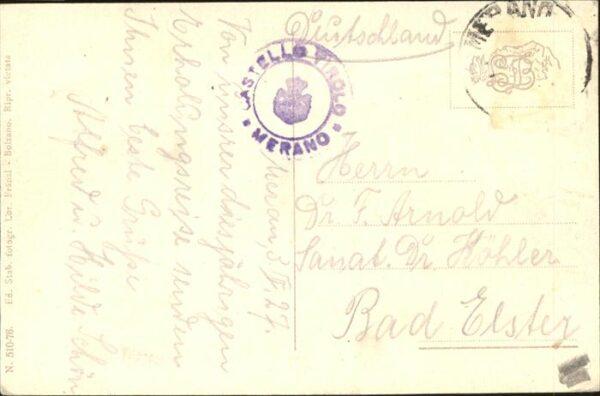 Deutschland
MERANO
CASTELLO TIROLO
MERANO
Meran, 3. 27.
Von unserer diesjährigen
Erholungsreise senden
Ihnen beste Grüße
Alfred u. Hilde Schön
Herrn
Dr. F. Arnold
Sanat. Dr. Köhler
Bad Elster
N. 510-76. Ed. Stab. fotogr. Lor. Fränzl - Bolzano. Ripr. vietata